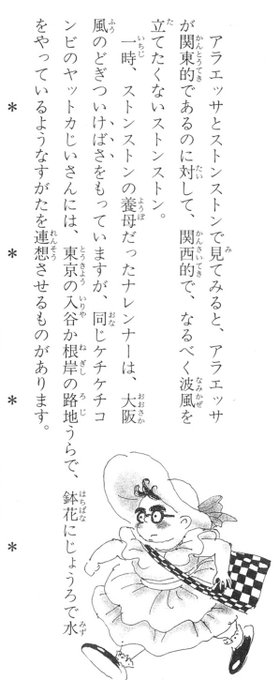 アラエッサとストンストンで見てみると、アラエッサ
が関東的であるのに対して、関西的で、なるべく波風を
立てたくないストンストン。
一時、ストンストンの養母だったナレンナーは、大阪
風のどぎついけばさをもっていますが、同じケチケチコ
ンビのヤットカじいさんには、東京の入谷か根岸の路地うらで、鉢花にじょうろで水
をやっているようなすがたを連想させるものがあります。
＊　＊　＊　＊